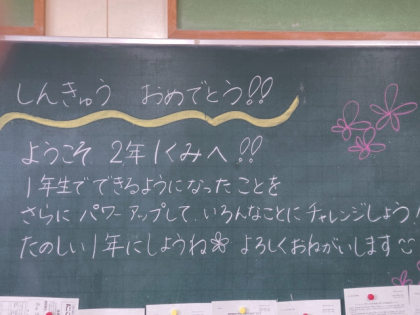 しんきゅう おめでとう!!
ようこそ 2年1くみへ!!
1年生で できるようになったことを
さらに パワーアップして いろんなことに チャレンジしよう!
たのしい1年にしようね よろしくおねがいします